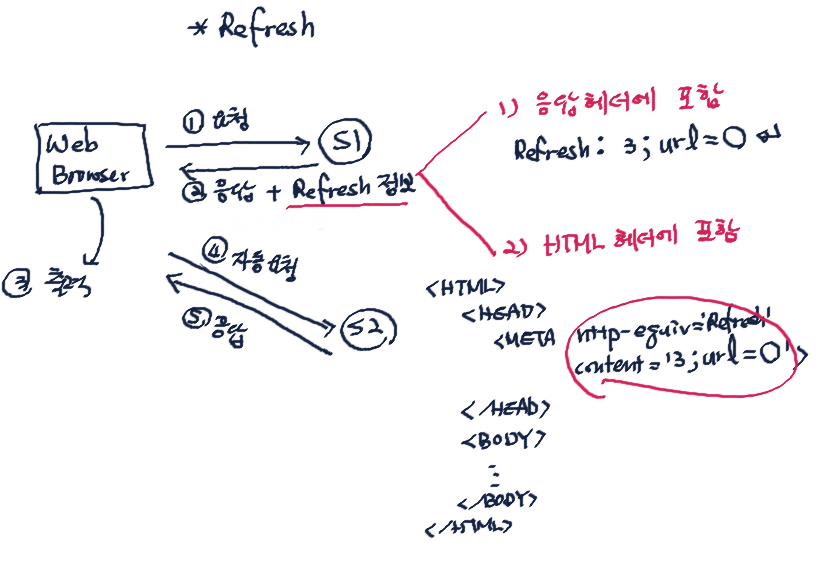 * Refresh
Web
Browser
① 요청
S1
② 응답 + Refresh 정보
③ 출력
④ 자동요청
⑤ 응답
S2
1) 응답헤더에 포함
Refresh: 3; url=○
2) HTML 헤더에 포함
<HTML>
<HEAD>
<META http-equiv='Refresh'
content='3;url=○'>
</HEAD>
<BODY>
⋮
</BODY>
</HTML>